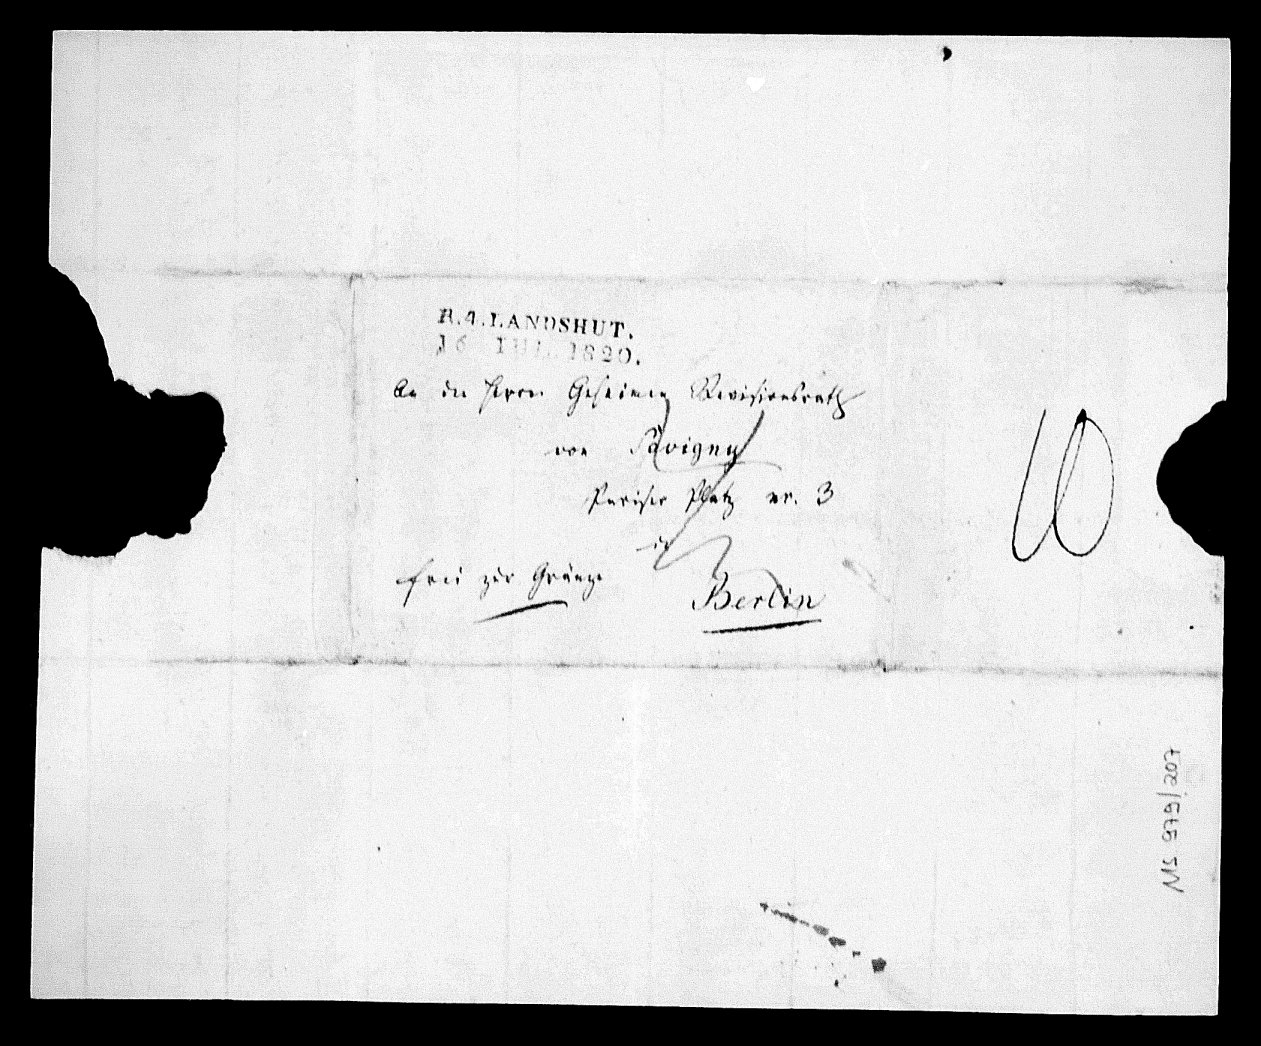 R.4.LANDSHUT.
16 IUL. 1820.
An den Herrn Geheimen Revisionsrath
von Savigny
Pariser Platz nr. 3
in
frei zur Gränze
Berlin
10
MS 979/207